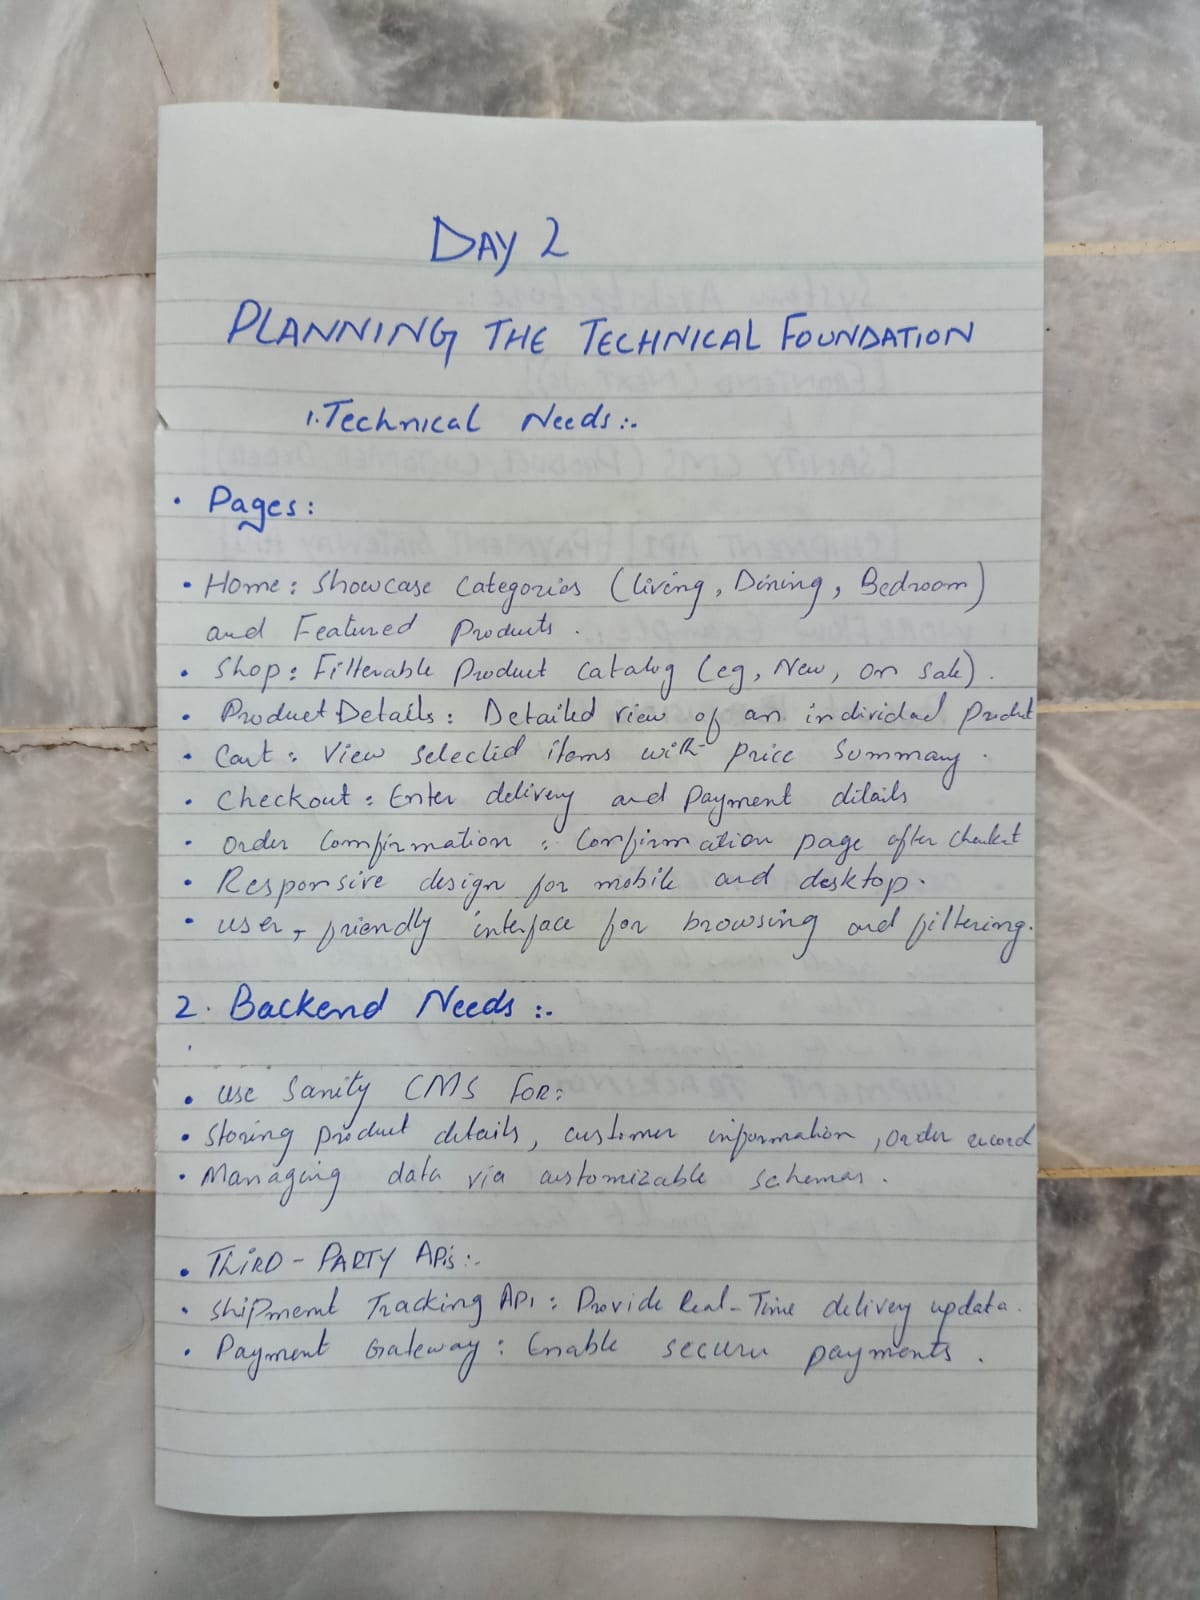 DAY 2
PLANNING THE TECHNICAL FOUNDATION
1. Technical Needs:.
• Pages:
• Home: Showcase Categories (living, Dining, Bedroom)
and Featured Products.
• Shop: Filterable Product Catalog (eg, New, on sale).
• Product Details: Detailed view of an individual Product
• Cart: View selected items with price summary.
• Checkout: Enter delivery and payment details
• Order Comfirmation: Confirmation page after
• Responsive design for mobile and desktop.
• User-friendly interface for browsing and filtering.
2. Backend Needs:.
• Use Sanity CMS FOR:
• Storing product details, customer information, order record
• Managing data via customizable schemas.
• THIRD-PARTY APIs:.
• Shipment Tracking API: Provide Real-Time delivery updata.
• Payment Gateway: Enable secure payments.